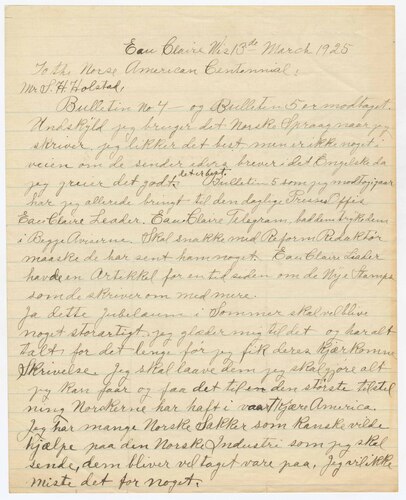 Eau Claire Wis 13de March 1925
To the Norse American Centennial;
Mr S. H. Holstad,
Bulletin No 4 - og Bulletin 5 er modtaget.
Undskyld jeg bruger det Norske Spraag naar jeg
skriver jeg likker det best men er ikke noget i
veien om de sender idera brever i det Engelske da
jeg greier det godt det er best. Bulletin 5 som jeg modtog igaar
har jeg allerede bragt til den daglige Presse Offis
Eau Claire Leader. Eau Claire Telegram, bad dem trykke dem
i Begge Aviserne. Skal snakke med Reform Redaktør
maaske de har sent ham noget. Eau Claire Leader
havde en Artikkel for en tid siden om de Nye Stamps
som de skriver om med mere.
Ja dette jubilæum i Sommer skal vel blive
noget storartigt, jeg glæder mig til det og har alt
talt for det lenge før jeg fik deres kjærkomne
Skrivelse. Jeg skal laave dem jeg skal gjøre alt
jeg kan faar og faa det til en den störste tilstel
ning Norskerne har haft i vaart Kjære America.
Jeg har mange Norske Sakker som kanske vilde
hjælpe paa den Norske Industri som jeg skal
sende, dem bliver vel taget vare paa, Jeg vil ikke
miste det for noget.